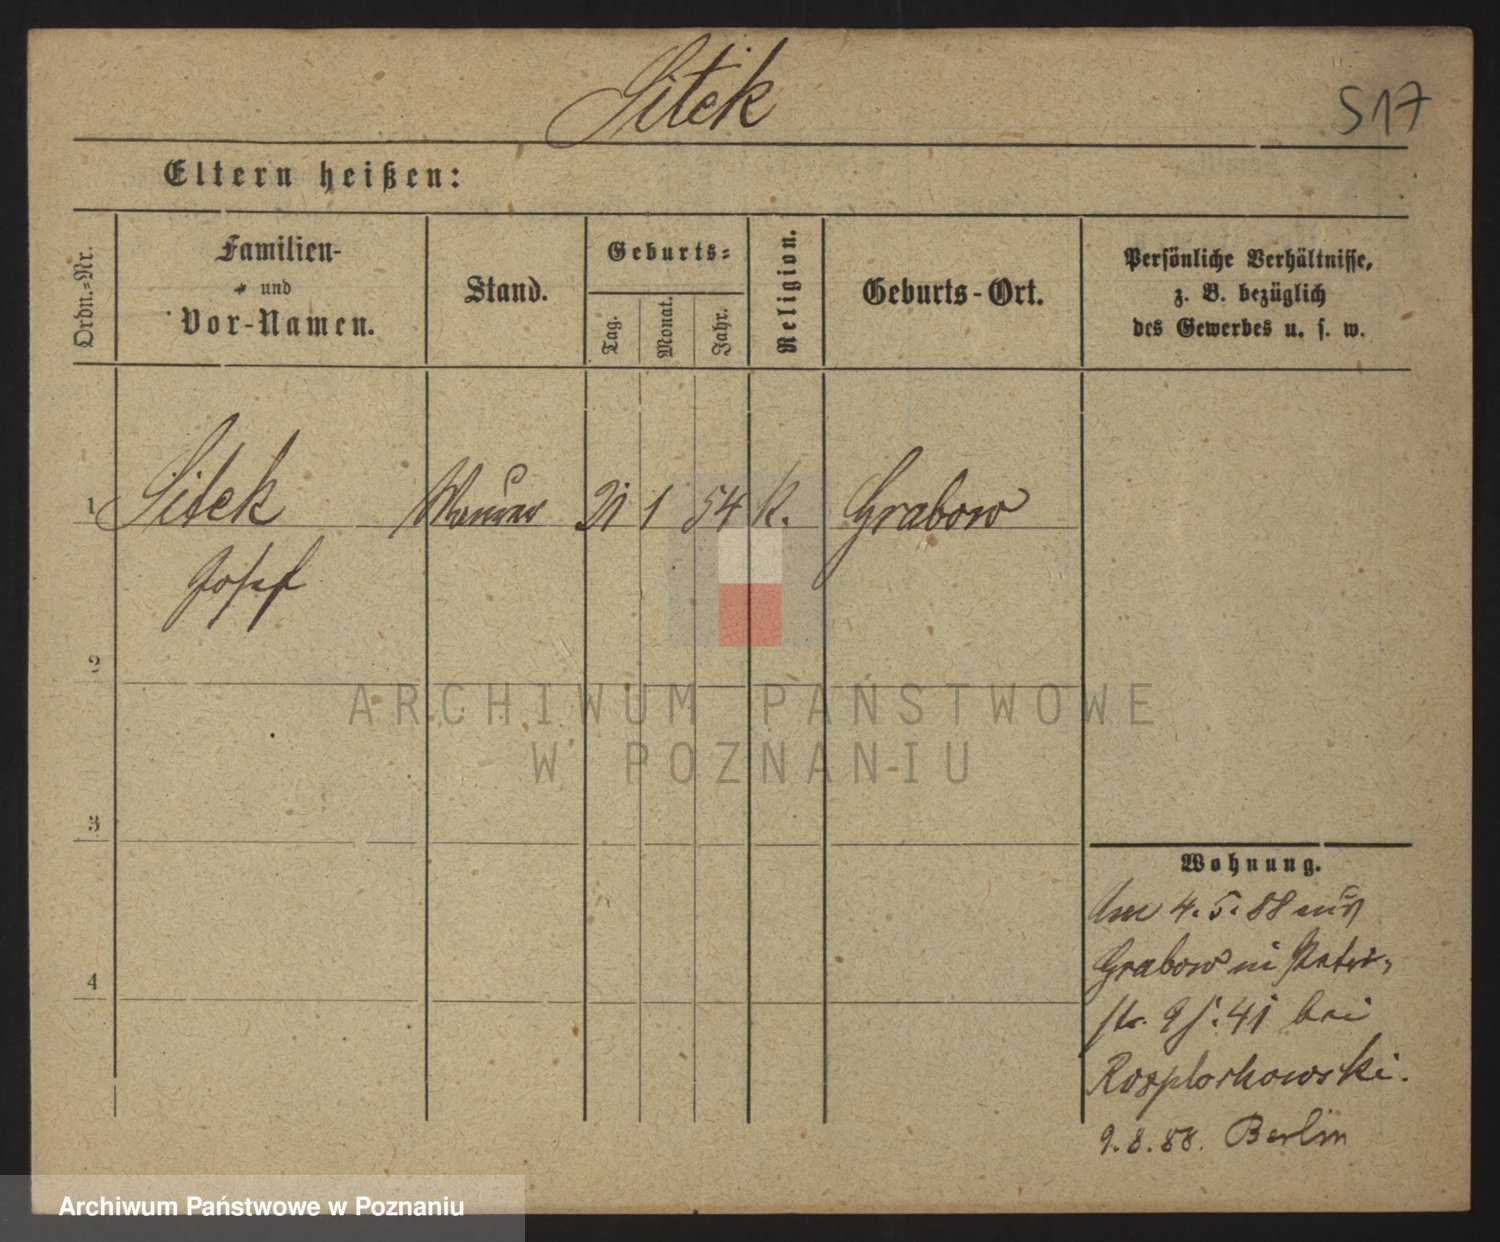 Sitek
S17
Eltern heißen:
Ordn.-Nr.
Familien-
und
Vor-Namen.
Stand.
Geburts-
Tag.
Monat.
Jahr.
Religion.
Geburts-Ort.
Persönliche Verhältnisse,
z. B. bezüglich
des Gewerbes u. s. w.
1 Sitek Maurer 21 1 54 k. Grabow
Josef
2
ARCHIWUM PAŃSTWOWE
W POZNANIU
3
Wohnung.
4. 5. 88 aus
Grabow
4
41 bei
9. 8. 88. Berlin
Archiwum Państwowe w Poznaniu